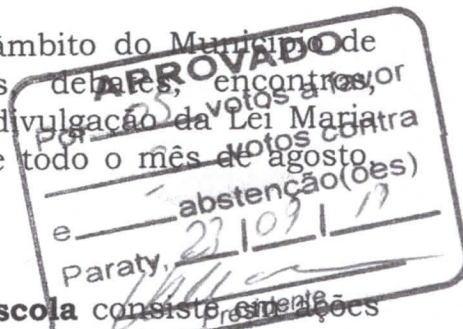 âmbito do Município de
s debates, encontros,
divulgação da Lei Maria
e todo o mês de agosto.
scola consiste em ações
APROVADO
Por 05 votos a favor
votos contra
e abstenção(ões)
Paraty, 23 | 09 |
Presidente